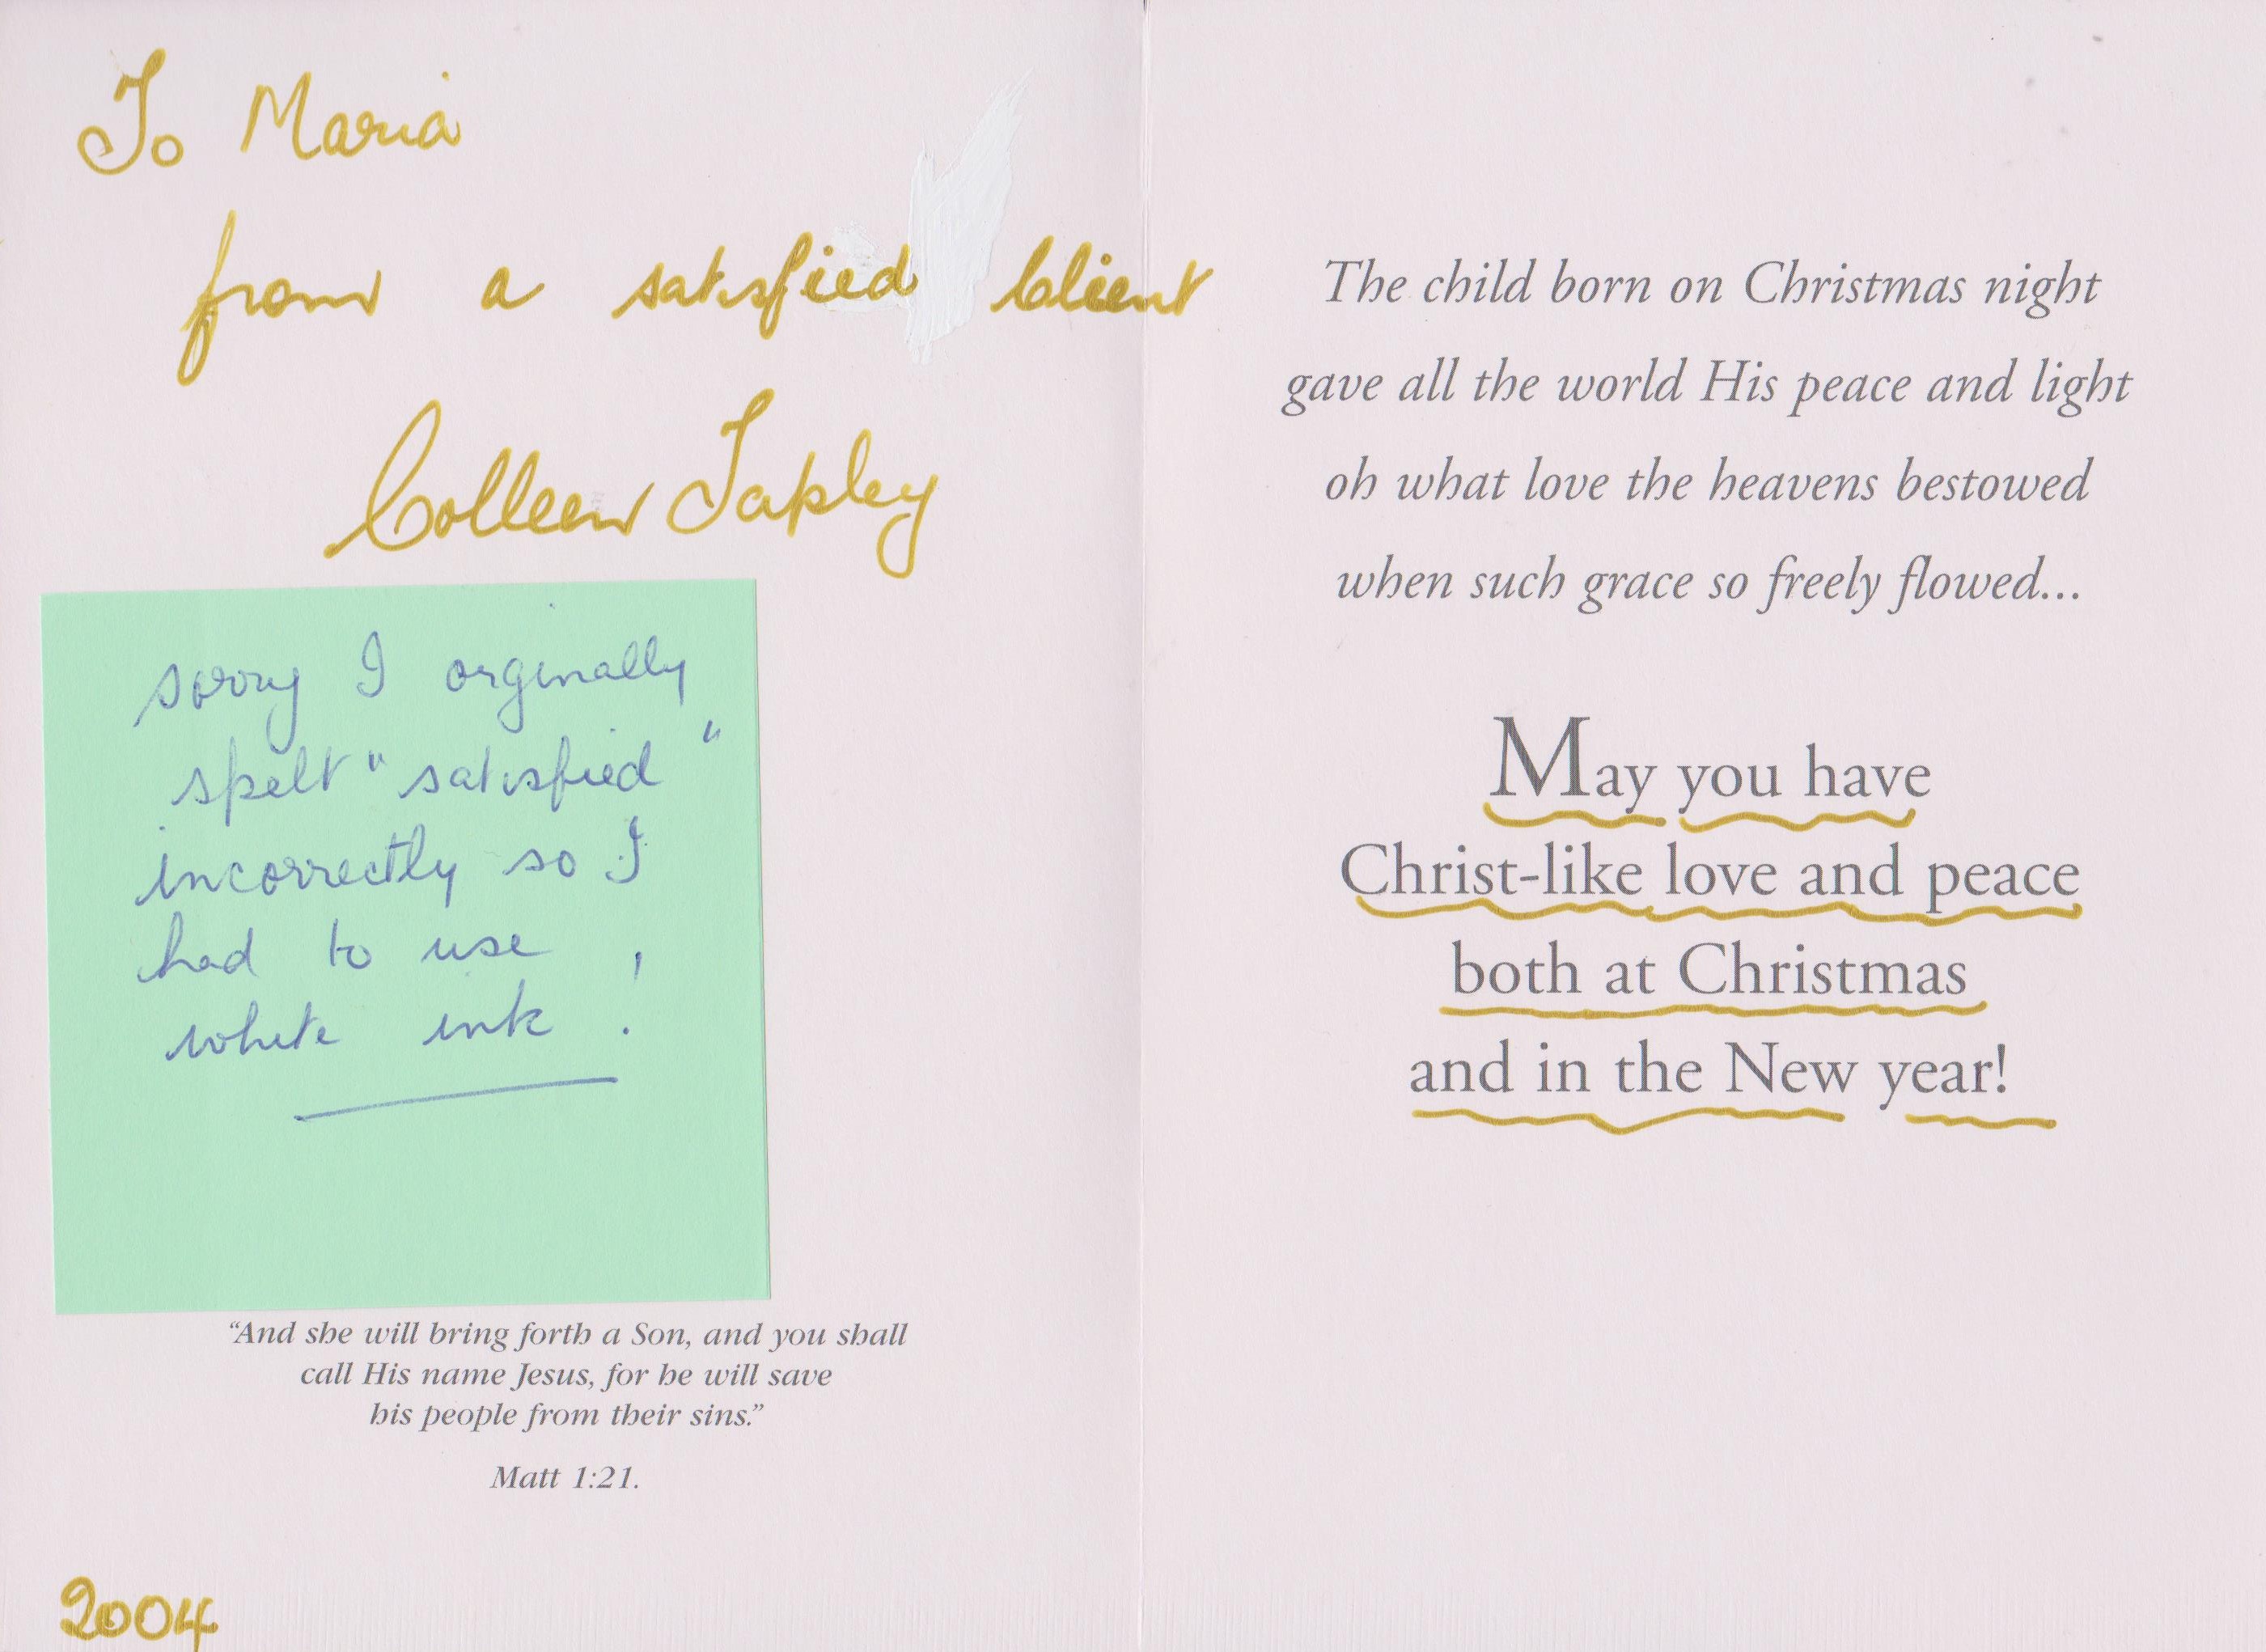 To Maria
from a satisfied Client
Colleen Tapley
sorry I orginally
spelt "satisfied"
incorrectly so I
had to use
white ink !
"And she will bring forth a Son, and you shall
call His name Jesus, for he will save
his people from their sins."
Matt 1:21.
2004
The child born on Christmas night
gave all the world His peace and light
oh what love the heavens bestowed
when such grace so freely flowed...
May you have
Christ-like love and peace
both at Christmas
and in the New year!